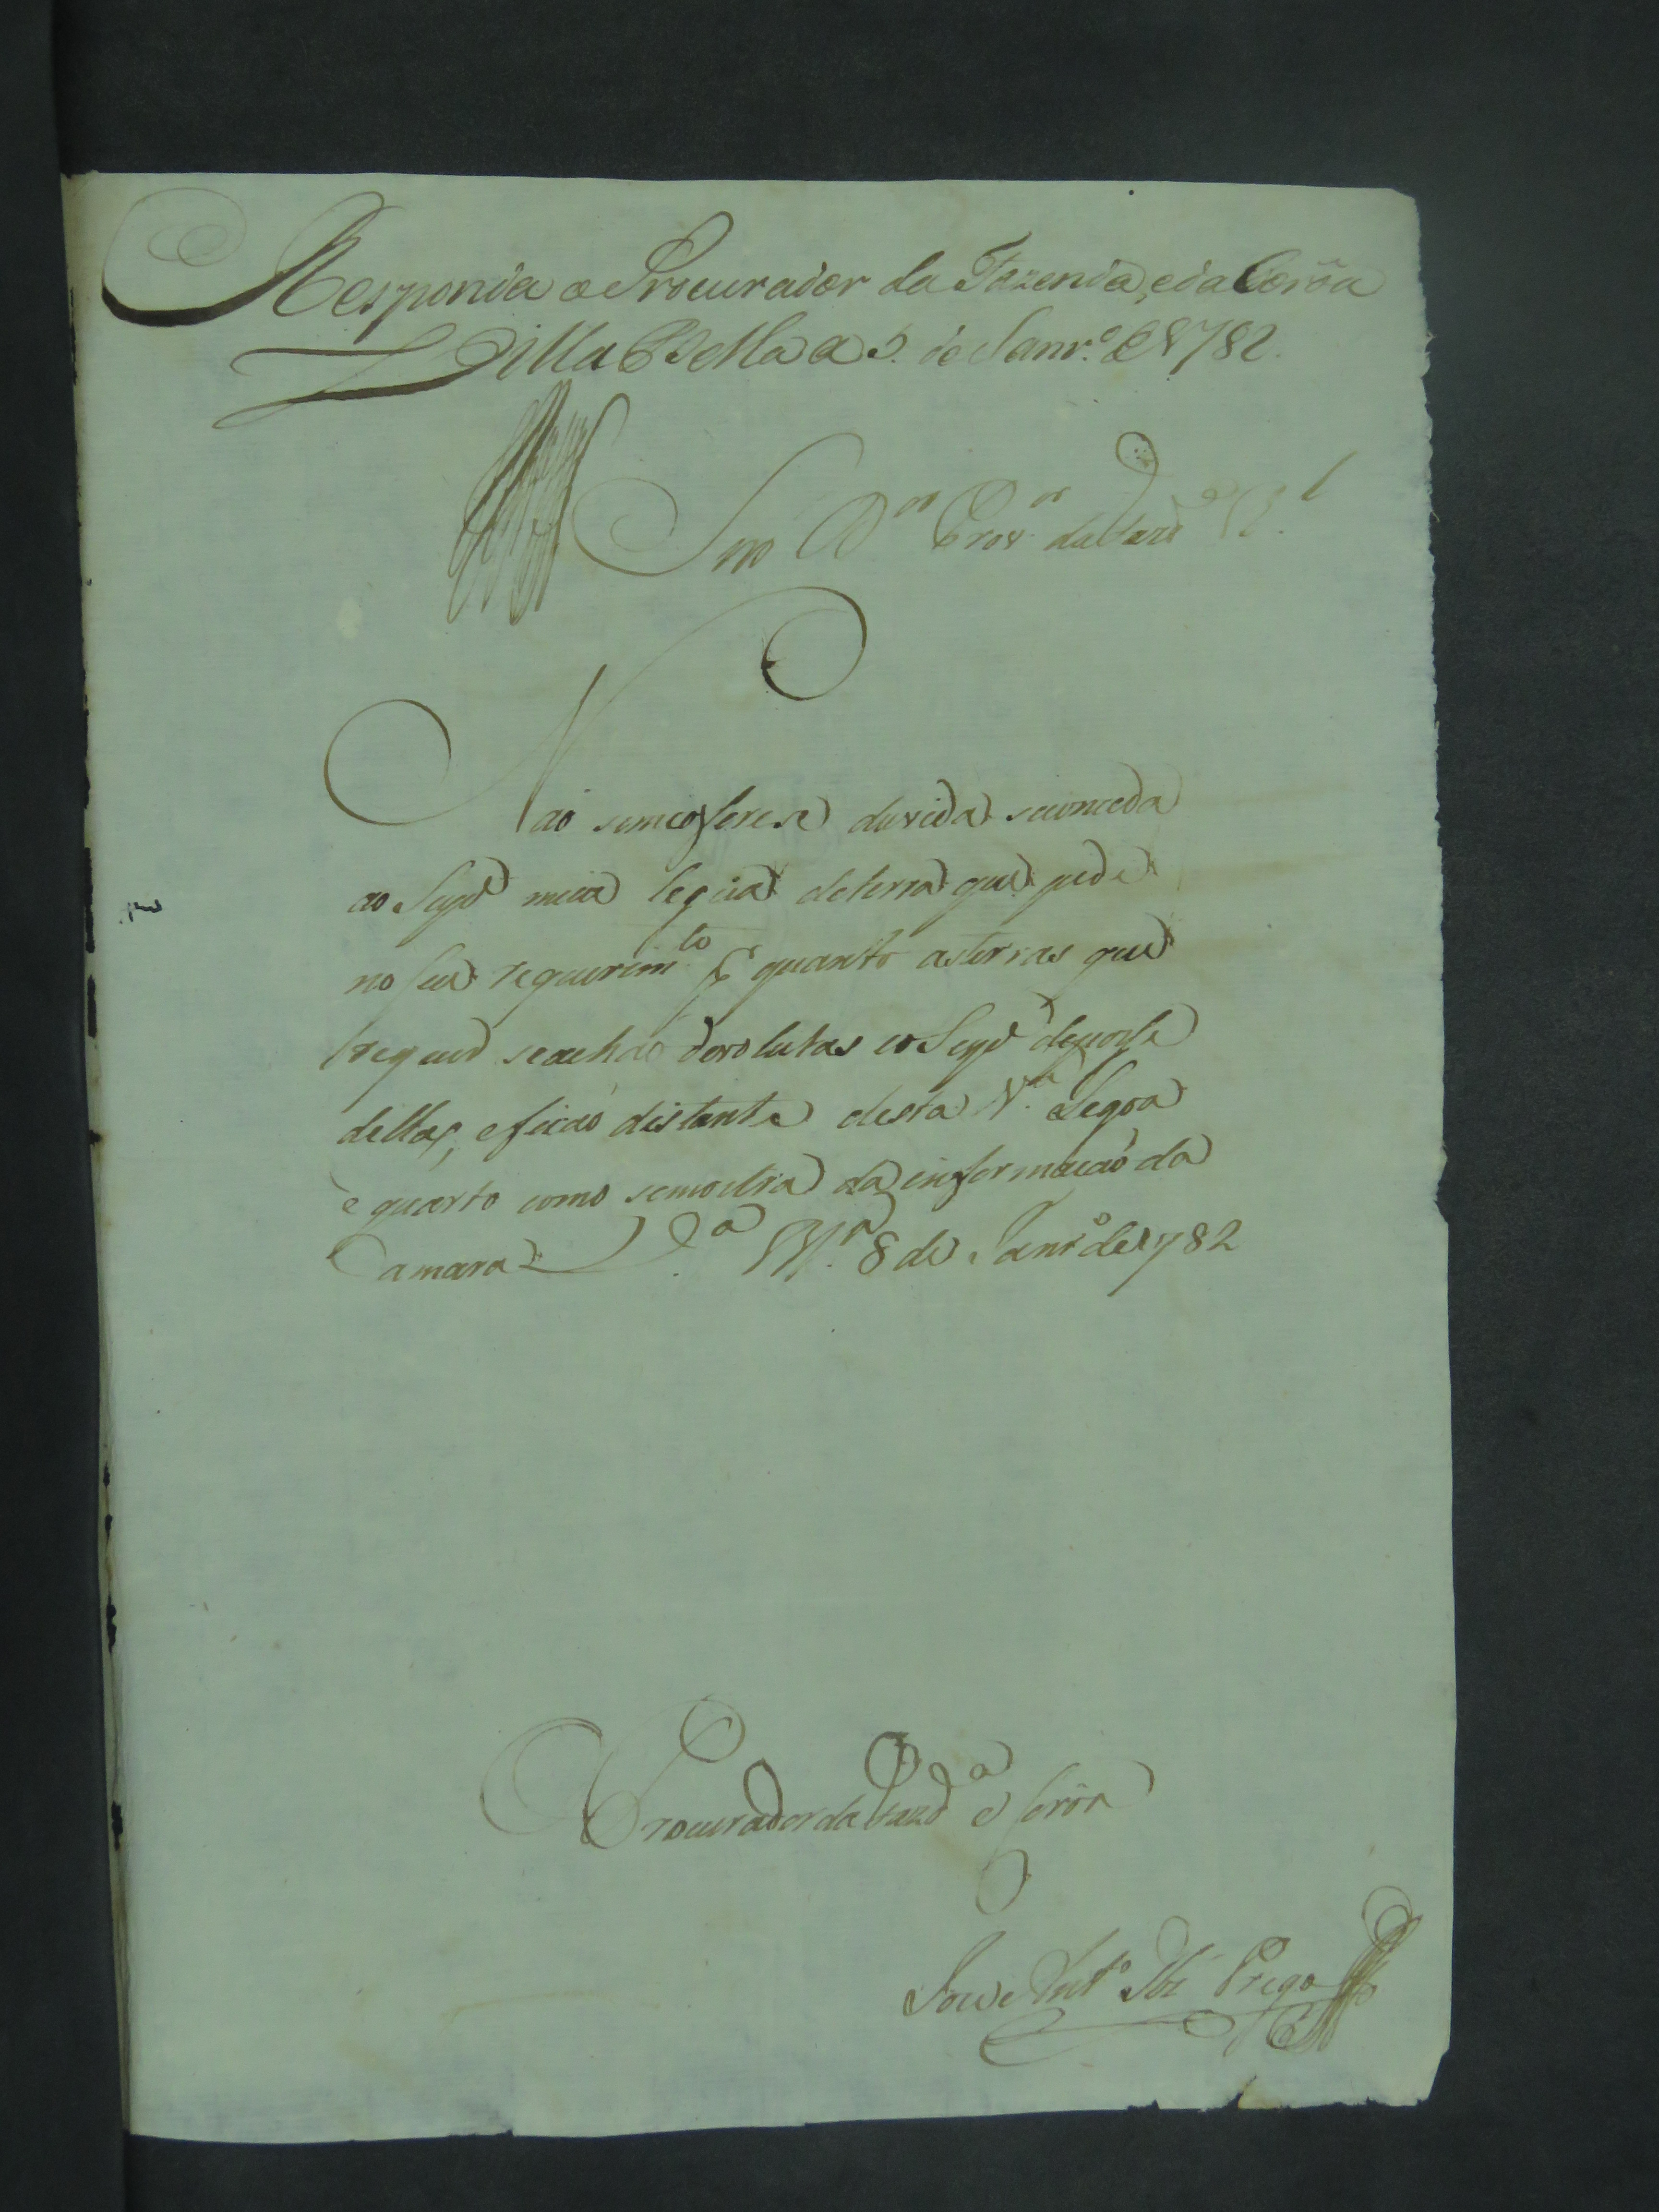 Responda o Procurador da Fazenda, e da Corôa
Villa Bella a 5. de Janr.º de 1782.
Snr D.or Prov.or da Fazd.ª R.l
Naó semeoferese duvida seconceda
ao Sup.e meia legua deterra que pede
no seu requerim.to P.r quanto asterras que
requer seachaó devolutas eo Sup.e deposse
dellas, eficaó distante desta V.ª Legoa
e quarto como semostra da informacaó da
Camara V.ª B.ª 8 de Janr.º de 1782
Procurador da Fazd.ª e Corôa
Joze Ant.º Prego